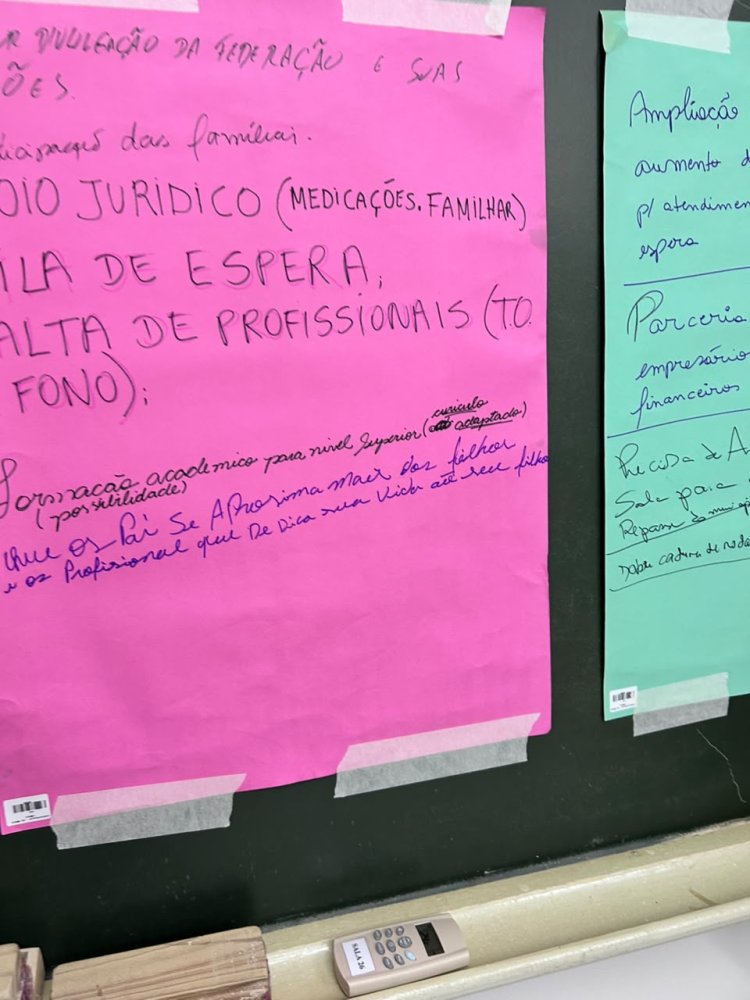 R DIVULGAÇÃO DA FEDERAÇÃO E SUAS
ÕES.
das famílias.
OIO JURIDICO (MEDICAÇÕES. FAMILHAR)
ILA DE ESPERA;
ALTA DE PROFISSIONAIS (T.O.
FONO);
Formação academico para nivel superior (curiculo
adaptado)
(possibilidade)
que os Pai se Aprosima mais dos filhos
e os Profissional que De Dica sua Vida até seu filho
Ampliação
aumento d
p/ atendimen
espera
Parceria
empresário
financeiros
Sala para
Repasse
SALA 26